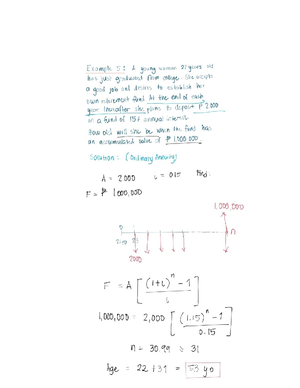 Example 5: A young woman, 22 years old
has just graduated from college. She accepts
a good job and desires to establish her
own retirement fund. At the end of each
year thereafter she plans to deposit ₱ 2000
in a fund at 15% annual interest.
How old will she be when the fund has
an accumulated value of ₱ 1,000,000
Solution: (Ordinary Annuity)
A = 2000 i = 0.15
F = ₱ 1,000,000
1,000,000
0
n
2000
F = A [ (1+i)^n - 1 / i ]
1,000,000 = 2,000 [ (1.15)^n - 1 / 0.15 ]
n = 30.99 ≈ 31
Age = 22 + 31 = 53 yo